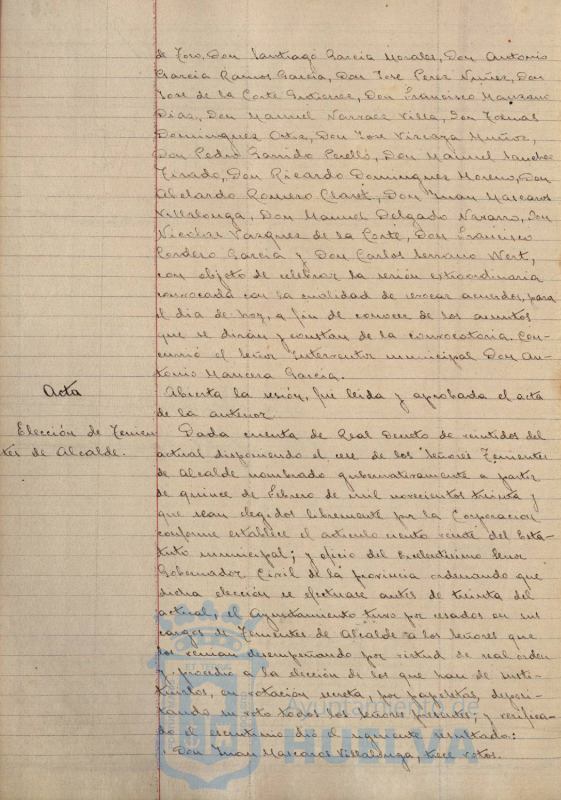 de Toro, Don Santiago García Morales, Don Antonio
García Ramos García, Don Jose Perez Nuñez, Don
Jose de la Corte Gutierrez, Don Francisco Manzano
Diaz, Don Manuel Narvaez Villa, Don Tomas
Dominguez Ortiz, Don Jose Vizcaya Muñoz,
Don Pedro Garrido Perelló, Don Manuel Sanchez
Tirado, Don Ricardo Dominguez Moreno, Don
Abelardo Romero Claret, Don Juan Mascaros
Villalonga, Don Manuel Delgado Navarro, Don
Nicolas Vazquez de la Corte, Don Francisco
Cordero García y Don Carlos Serrano Wert,
con objeto de celebrar la sesión extraordinaria
convocada con la cualidad de revocar acuerdos, para
el dia de hoy, a fin de conocer de los asuntos
que se dirán y constan de la convocatoria. Con-
currió el Señor Interventor municipal Don An-
tonio Mancera García.
Acta
Abierta la sesión, fué leida y aprobada el acta
de la anterior
Elección de Tenien
tes de Alcalde.
Dada cuenta de Real Decreto de veintidos del
actual disponiendo el cese de los Señores Tenientes
de Alcalde nombrado gubernativamente a partir
de quince de Febrero de mil novecientos treinta y
que sean elegidos libremente por la Corporacion
conforme establece el articulo ciento veinte del Esta-
tuto municipal; y oficio del Excelentisimo Señor
Gobernador Civil de la provincia ordenando que
dicha elección se efectuase antes de treinta del
actual, el Ayuntamiento tuvo por cesados en sus
cargos de Tenientes de Alcalde a los Señores que
los venian desempeñando por virtud de real orden
y procedió a la elección de los que han de susti-
tuirlos, en votación secreta, por papeletas, deposi-
tando su voto todos los Señores presentes; y verifica-
do el escrutinio dió el siguiente resultado:
Don Juan Mascaros Villalonga, trece votos.
Ayuntamiento de
HUELVA